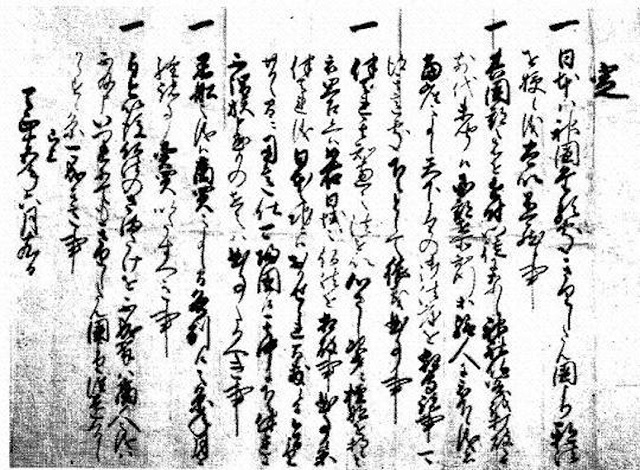 定
一 日本ハ神国たる処きりしたん国より邪法
を授候儀太以不可然候事
一 其国郡之者を近付門徒になし神社仏閣を打破之
由前代未聞候国郡在所知行等給人に被下候儀者
当座之事候天下よりの御法度を相守諸事可
得其意処下々として猥義曲事事
一 伴天連其知恵之法を以心さし次第ニ檀那を持候と
被思召候へハ如右日域之仏法を相破事曲事候条
伴天連儀日本之地ニハおかせられ間敷候間今日より廿日之
間ニ用意仕可帰国候其中に下々伴天連に
不謂族申懸もの在之ハ曲事たるへき事
一 黒船之儀ハ商買之事候間各別候之条年月を
経諸事売買いたすへき事
一 自今以後仏法のさまたけを不成輩ハ商人之儀ハ
不及申いつれにてもきりしたん国より往還くるし
からす候条可成其意事
已上
天正十五年六月十九日